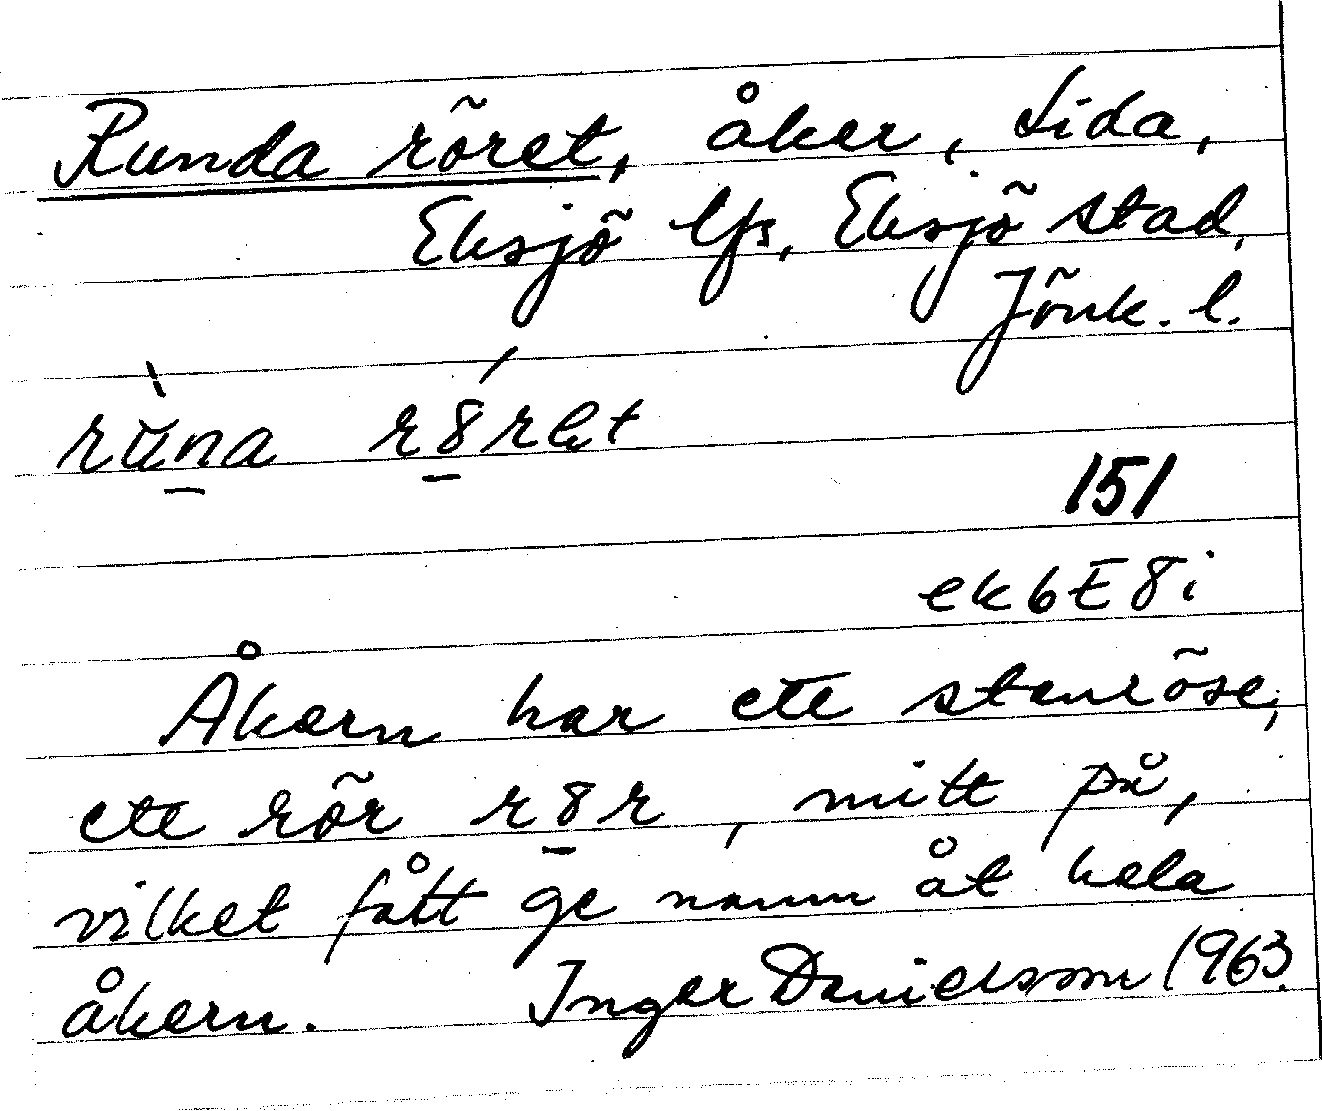 Runda röret, åker, Lida,
Eksjö lfs, Eksjö stad,
Jönk. l.
rùna r8́ret
151
ek 6 E 8 i
Åkern har ett stenröse,
ett rör r8r, mitt på,
vilket fått ge namn åt hela
åkern. Inger Danielsson 1963.